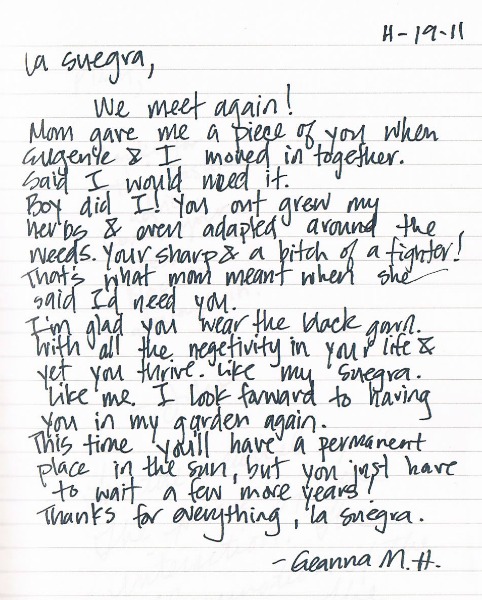 4-19-11
La suegra,
We meet again!
Mom gave me a piece of you when
Eugenie & I moved in together.
Said I would need it.
Boy did I! You out grew my
herbs & even adapted around the
weeds. Your sharp & a bitch of a fighter!
That's what mom meant when she
said I'd need you.
I'm glad you wear the black gown.
With all the negetivity in your life &
yet you thrive. Like my suegra.
Like me. I look forward to having
you in my garden again.
This time you'll have a permanent
place in the sun, but you just have
to wait a few more years!
Thanks for everything, la suegra.
- Geanna M. H.